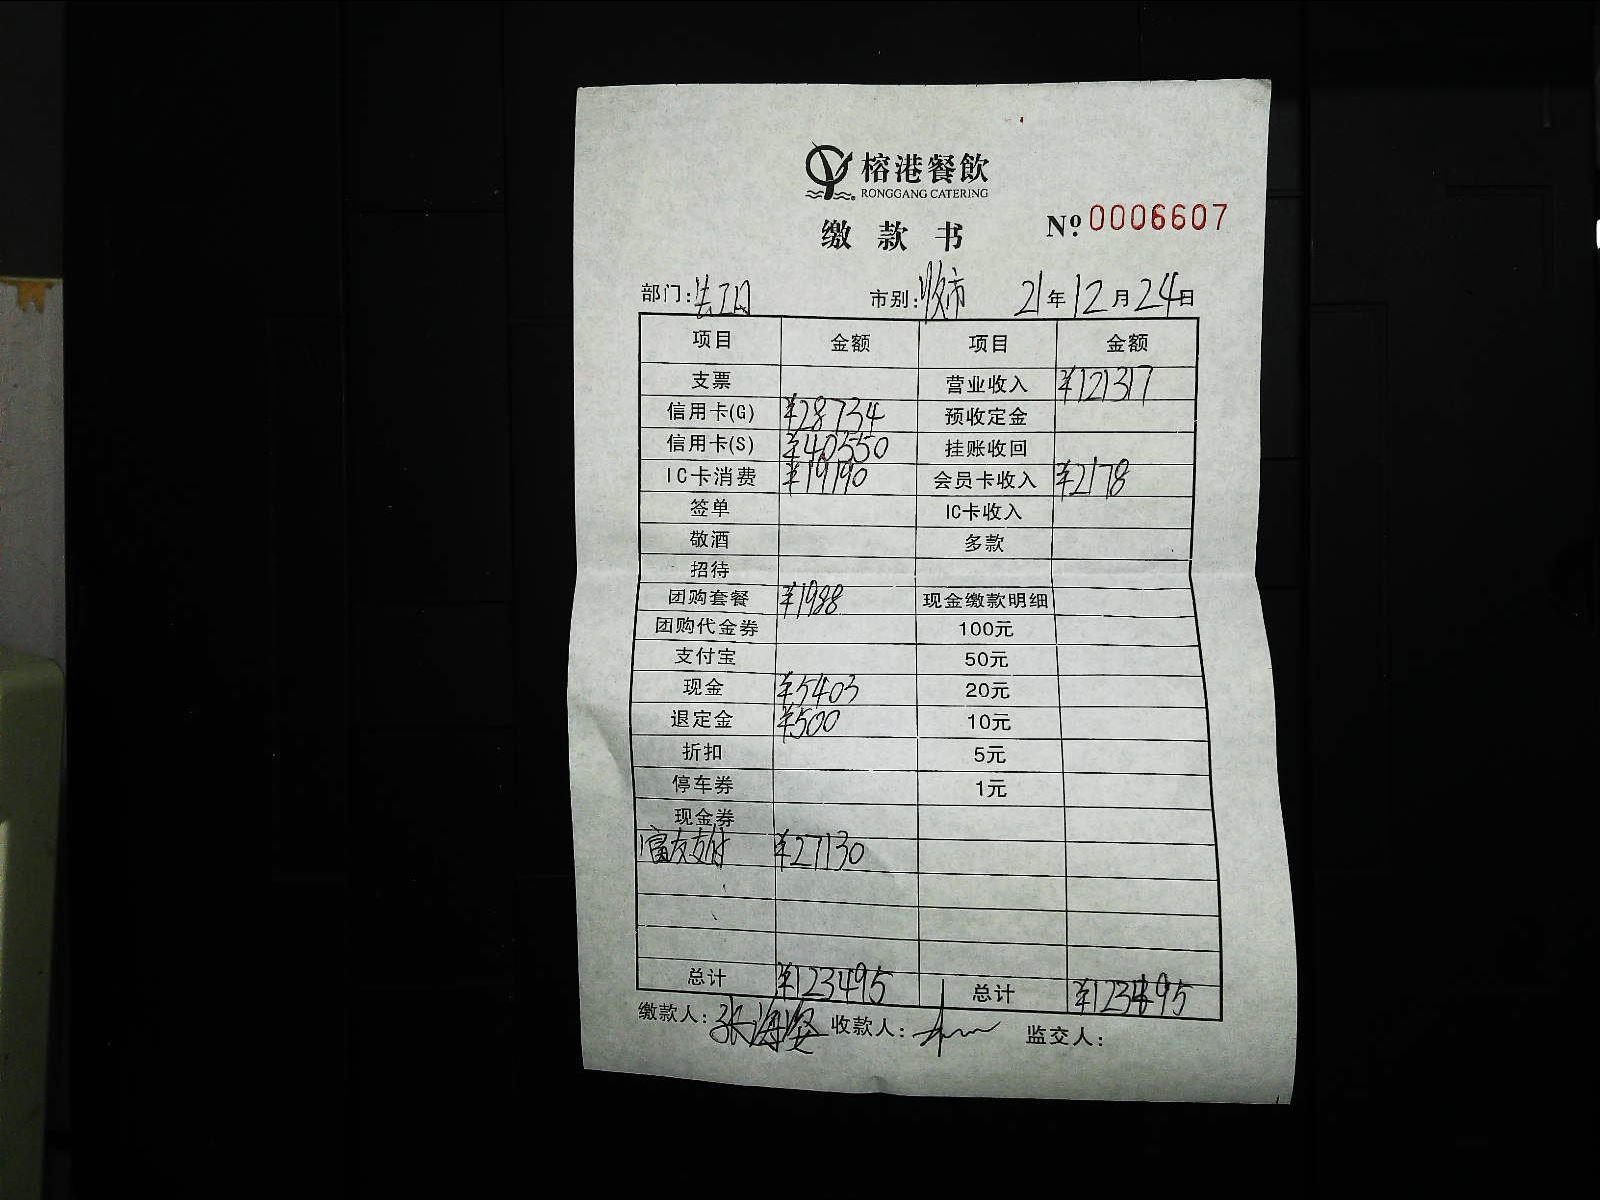 榕港餐飲
RONGGANG CATERING
缴款书 Nº 0006607
部门: 市别:收市 21年12月24日
项目 金额 项目 金额
支票 营业收入 ¥121317
信用卡(G) ¥28734 预收定金
信用卡(S) ¥40550 挂账收回
IC卡消费 ¥19190 会员卡收入 ¥2178
签单 IC卡收入
敬酒 多款
招待
团购套餐 ¥1988 现金缴款明细
团购代金券 100元
支付宝 50元
现金 ¥5403 20元
退定金 ¥500 10元
折扣 5元
停车券 1元
现金券
富友支付 ¥27130
总计 ¥123495 总计 ¥123495
缴款人:张海 收款人: 监交人: